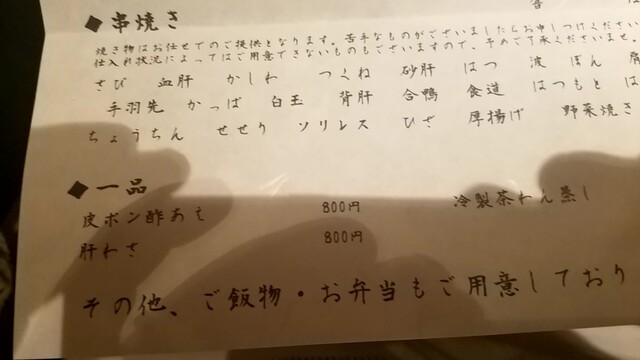 ◆串焼き
焼き物はお任せでのご提供となります。苦手なものがございましたらお申しつけください
仕入れ状況によってはご用意できないものもございますので、予めご了承くださいませ。
さび 血肝 かしわ つくね 砂肝 はつ 波 ぼん 肩
手羽先 かっぱ 白玉 背肝 合鴨 食道 はつもと は
ちょうちん せせり ソリレス ひざ 厚揚げ 野菜焼き
◆一品
皮ポン酢あえ 800円 冷製茶わん蒸し
肝わさ 800円
その他、ご飯物・お弁当もご用意しており